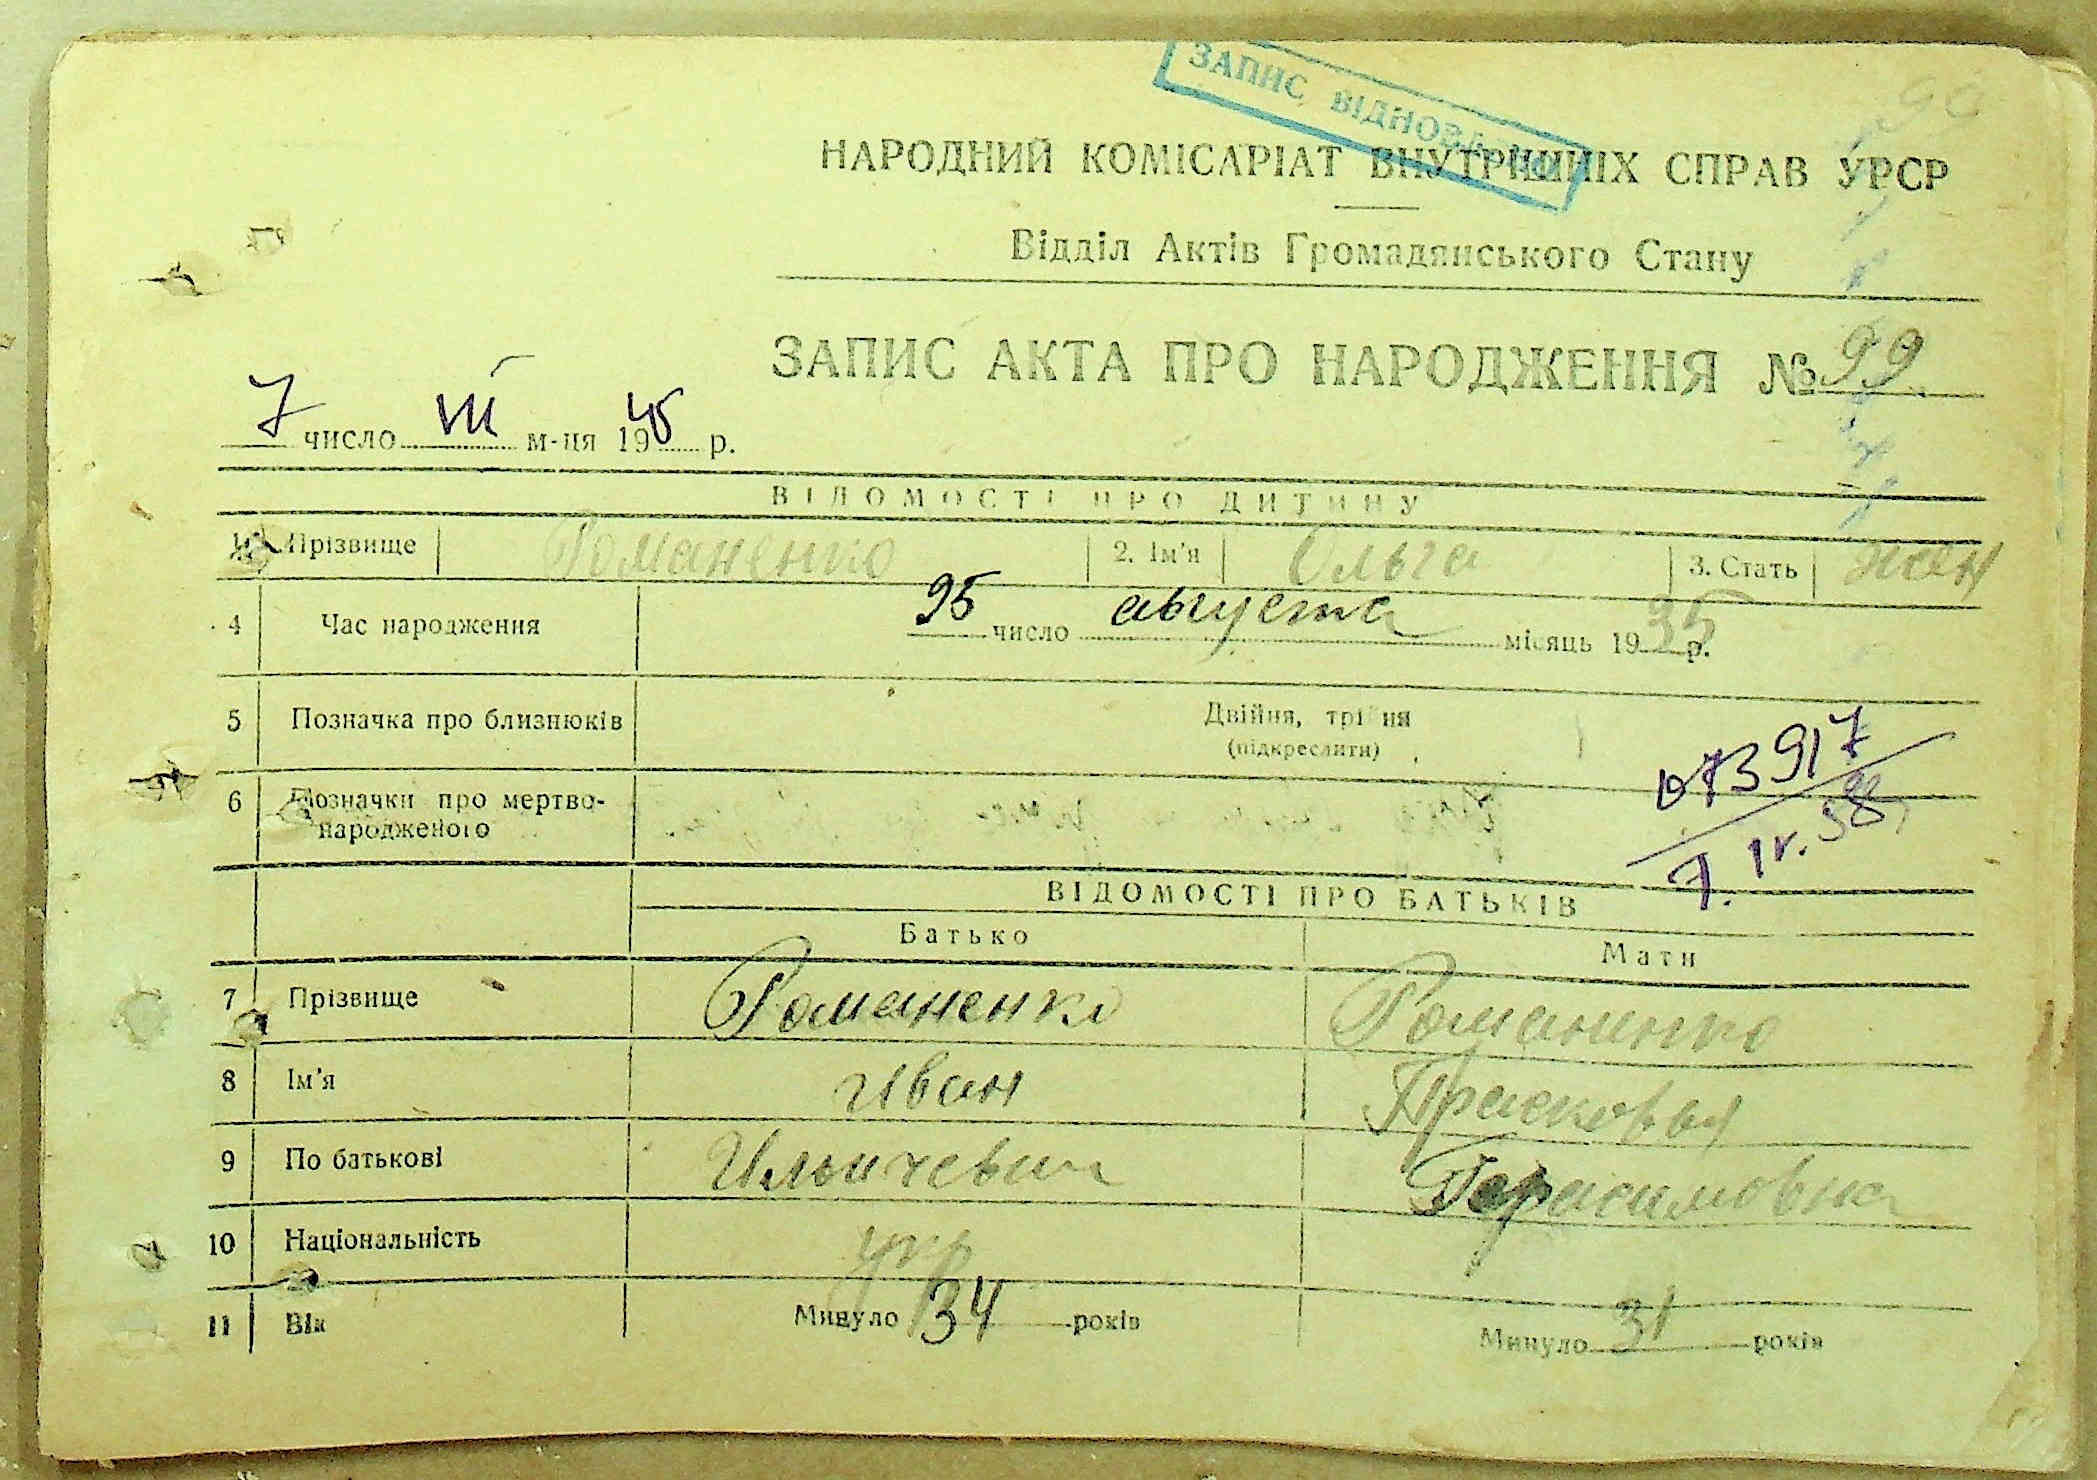 ЗАПИС ВІДНОВЛЕНО
НАРОДНИЙ КОМІСАРІАТ ВНУТРІШНІХ СПРАВ УРСР
Відділ Актів Громадянського Стану
ЗАПИС АКТА ПРО НАРОДЖЕННЯ № 99
7 число VIII м-ця 1945 р.
ВІДОМОСТІ ПРО ДИТИНУ
1 Прізвище Романенко 2. Ім'я Ольга 3. Стать жен
4 Час народження 25 число августа місяць 1935 р.
5 Позначка про близнюків Двійня, трійня
(підкреслити)
6 Позначки про мертво-
народженого
073917
7. IV. 58
ВІДОМОСТІ ПРО БАТЬКІВ
Батько Мати
7 Прізвище Романенко Романенко
8 Ім'я Иван Прасковья
9 По батькові Ильичевич Герасимовна
10 Національність укр
11 Вік Минуло 34 років Минуло 31 років